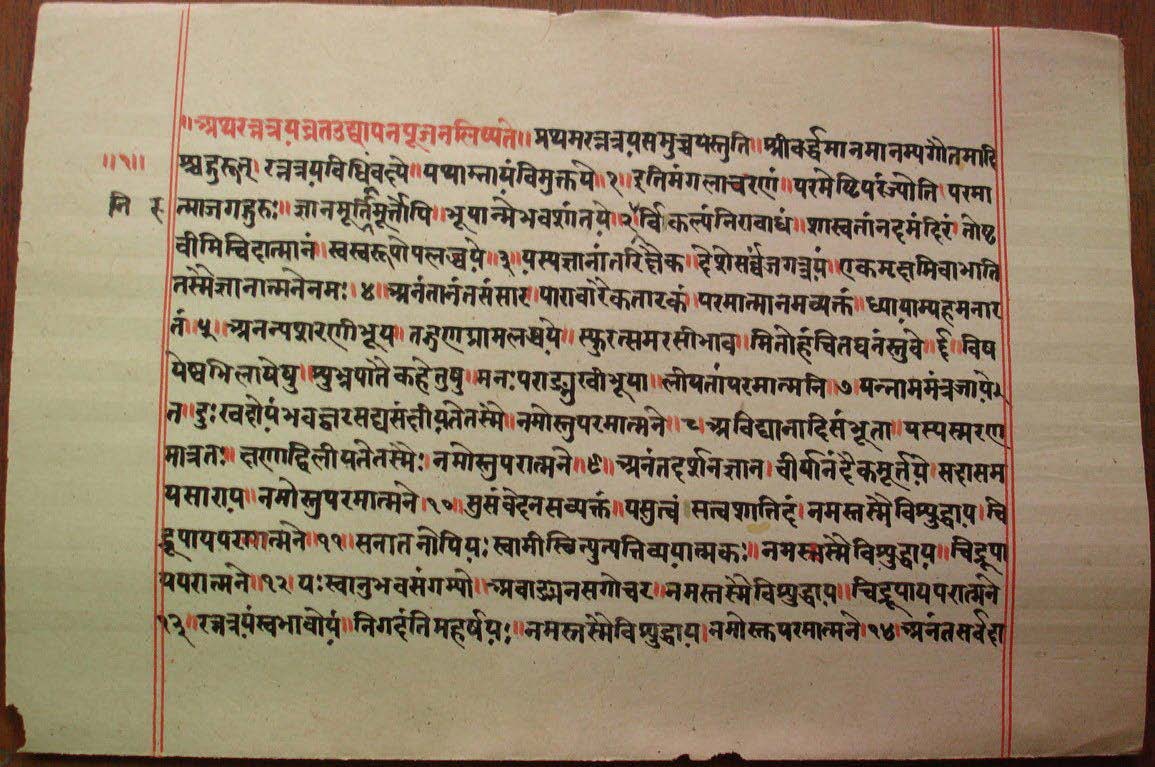 ॥अथरत्नत्रयव्रतउद्यापनपूजनलिष्यते॥ प्रथमरत्नत्रयसमुच्चयस्तुति॥ श्रीवर्द्धमानमानम्यगौतमादि
॥१॥
श्चगुरून्॥रत्नत्रयविधिंवक्ष्ये॥यथाम्नायंविमुक्तये॥१॥इतिमंगलाचरणं॥परमेष्टिपरंज्योति परमा
नि रु
त्माजगद्गुरुः॥ज्ञानमूर्तिमूर्त्तोपि॥भूयान्मेभवशांतये॥२॥र्विकल्पंनिराबाधं॥शास्वतांनदमंदिरं॥तोष्ट
वीमिचिदात्मानं॥स्वस्वरूपोपलब्धये॥३॥यस्यज्ञानांतरिक्षैक॥देशेसर्व्वंजगत्त्रयं॥एकमृक्षमिवाभाति
तस्मैज्ञानात्मनेनमः॥४॥अनंतानंतसंसार॥पारावारैकतारकं॥परमात्मानमव्यक्तं॥ध्यायाम्यहमनार
तं॥५॥अनन्यशरणीभूय॥तद्गुणग्रामलब्धये॥स्फुरत्समरसीभाव॥मितोहंचितघनंस्तुवे॥६॥विष
येष्वभिलाषेषु॥श्वभ्रपातैकहेतुषु॥मनःपराङ्मुखीभूया॥लीयतांपरमात्मनि॥७॥यन्नाममंत्रजापे
न॥दुःखदोयंभवज्वरसद्यसंक्षीयतेतस्मै॥नमोस्तुपरमात्मने॥८॥अविद्यानादिसंभूता॥यस्यस्मरण
मात्रतः॥क्षणाद्विलीयतेतस्मैः॥नमोस्तुपरात्मने॥९॥अनंतदर्शनज्ञान॥वीर्यानंदैकमूर्त्तये॥सदासम
यसाराय॥नमोस्तुपरमात्मने॥१०॥सुसंवेदनसव्यक्तं॥यसुत्वं सत्वशातिदं॥नमस्तस्मैविशुद्धाय॥चि
द्रूपायपरमात्मने॥११॥सनातनोपियः॥स्वामीस्थित्युत्पत्तिव्ययात्मकः॥नमस्तस्मैविशुद्धाय॥चिद्रूपा
यपरात्मने॥१२॥यःस्वानुभवसंगम्यो॥अवाङ्मनसगोचर॥नमस्तस्मैविशुद्धाय॥चिद्रूपायपरात्मने
१३॥रत्नत्रयंस्वभावोयं॥निगदंतिमहर्षयः॥नमस्तस्मैविशुद्धाय॥नमोस्तुपरमात्मने॥१४॥अनंतसर्वदा